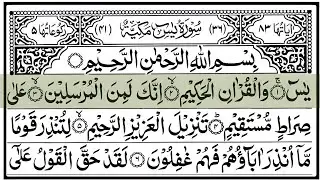 اٰيَاتُهَا ٨٣ (٣٦) سُوْرَةُ يٰسٓ مَكِّيَّةٌ (٤١) رُكُوْعَاتُهَا ٥
بِسْمِ اللّٰهِ الرَّحْمٰنِ الرَّحِيْمِ
يٰسٓ ۚ ﴿١﴾ وَالْقُرْاٰنِ الْحَكِيْمِ ۙ ﴿٢﴾ اِنَّكَ لَمِنَ الْمُرْسَلِيْنَ ۙ ﴿٣﴾ عَلٰى
صِرَاطٍ مُّسْتَقِيْمٍ ؕ ﴿٤﴾ تَنْزِيْلَ الْعَزِيْزِ الرَّحِيْمِ ۙ ﴿٥﴾ لِتُنْذِرَ قَوْمًا
مَّاۤ اُنْذِرَ اٰبَآؤُهُمْ فَهُمْ غٰفِلُوْنَ ﴿٦﴾ لَقَدْ حَقَّ الْقَوْلُ عَلٰۤى